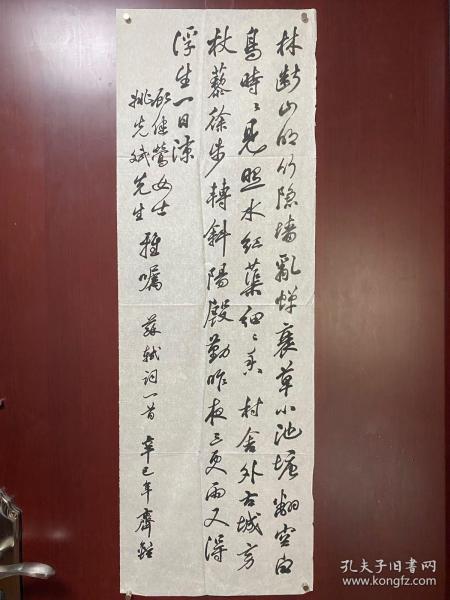 林断山明竹隐墙乱蝉衰草小池塘翻空白
鸟时时见照水红蕖细细香村舍外古城旁
杖藜徐步轉斜陽殷勤昨夜三更雨又得
浮生一日凉
女士
姚先斌先生雅嘱
蘇轼词一首辛巳年齊
孔夫子旧书网
www.kongfz.com